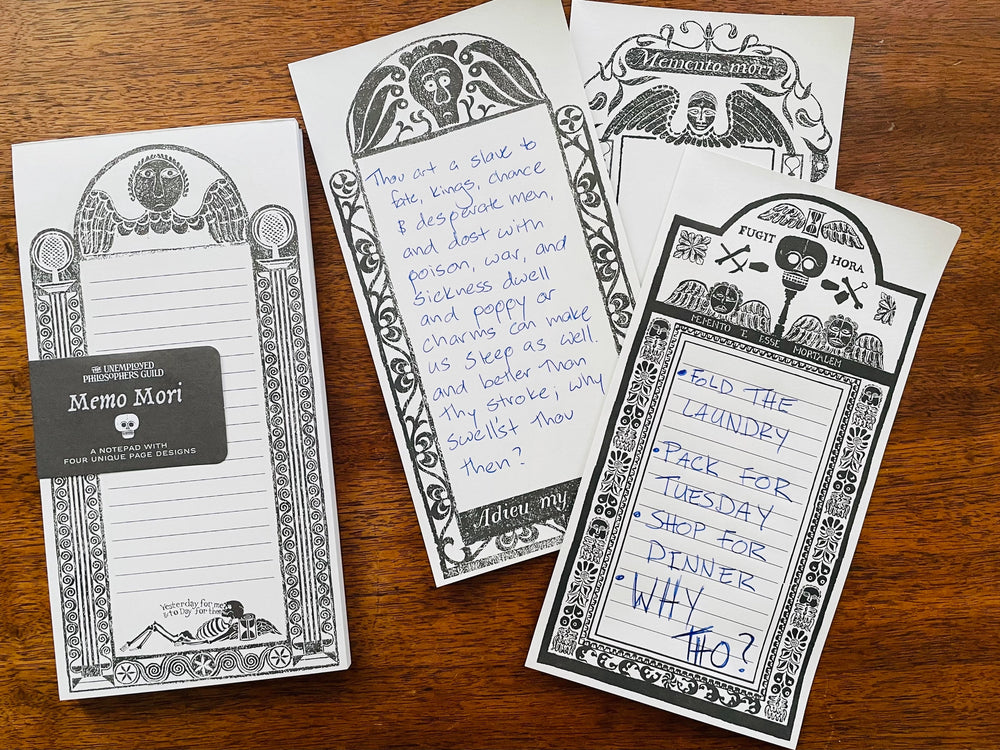 THE UNEMPLOYED
PHILOSOPHERS GUILD
Memo Mori
A NOTEPAD WITH
FOUR UNIQUE PAGE DESIGNS
Yesterday for me
& to Day for thee
Thou art a slave to
fate, kings, chance
& desperate men,
and dost with
poison, war, and
sickness dwell
and poppy or
charms can make
us sleep as well.
and better than
thy stroke; why
swell'st thou
then?
Adieu my
Memento mori
FUGIT
HORA
MEMENTO TE ESSE MORTALEM
• FOLD THE
LAUNDRY
• PACK FOR
TUESDAY
• SHOP FOR
DINNER
• WHY
THO?